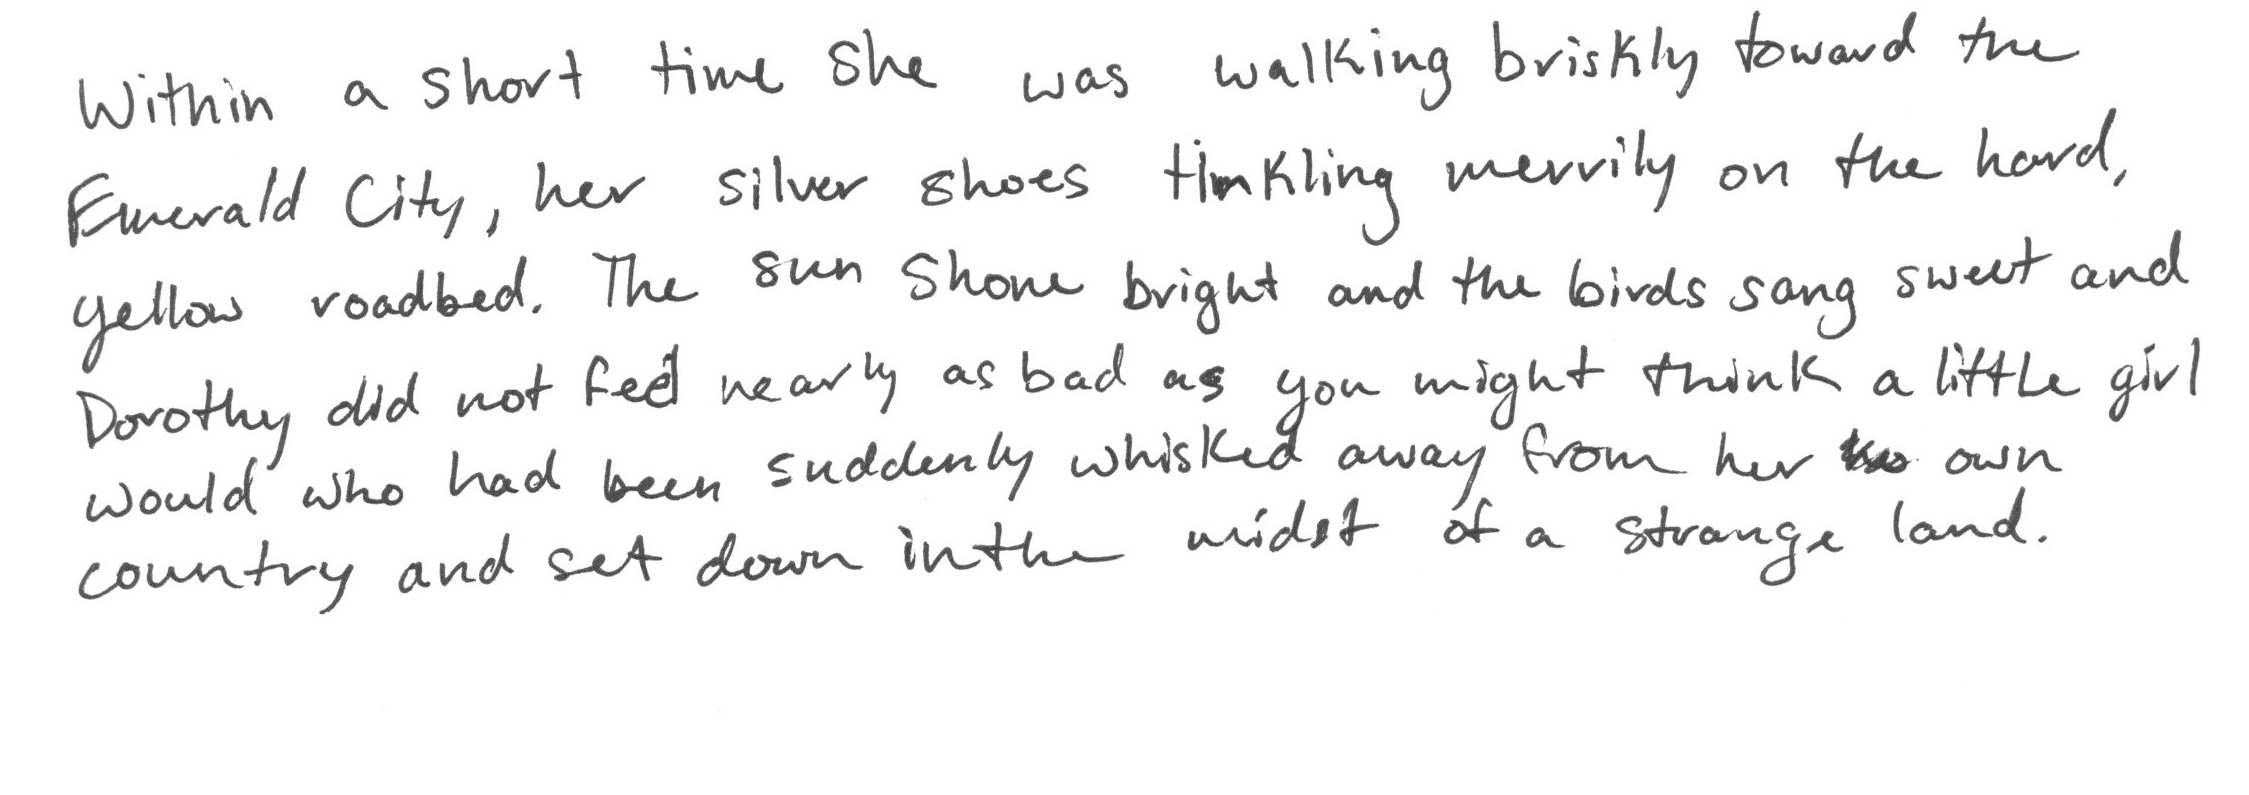 Within a short time she was walking briskly toward the
Emerald City, her silver shoes tinkling merrily on the hard,
yellow roadbed. The sun shone bright and the birds sang sweet and
Dorothy did not feel nearly as bad as you might think a little girl
would who had been suddenly whisked away from her own
country and set down in the midst of a strange land.